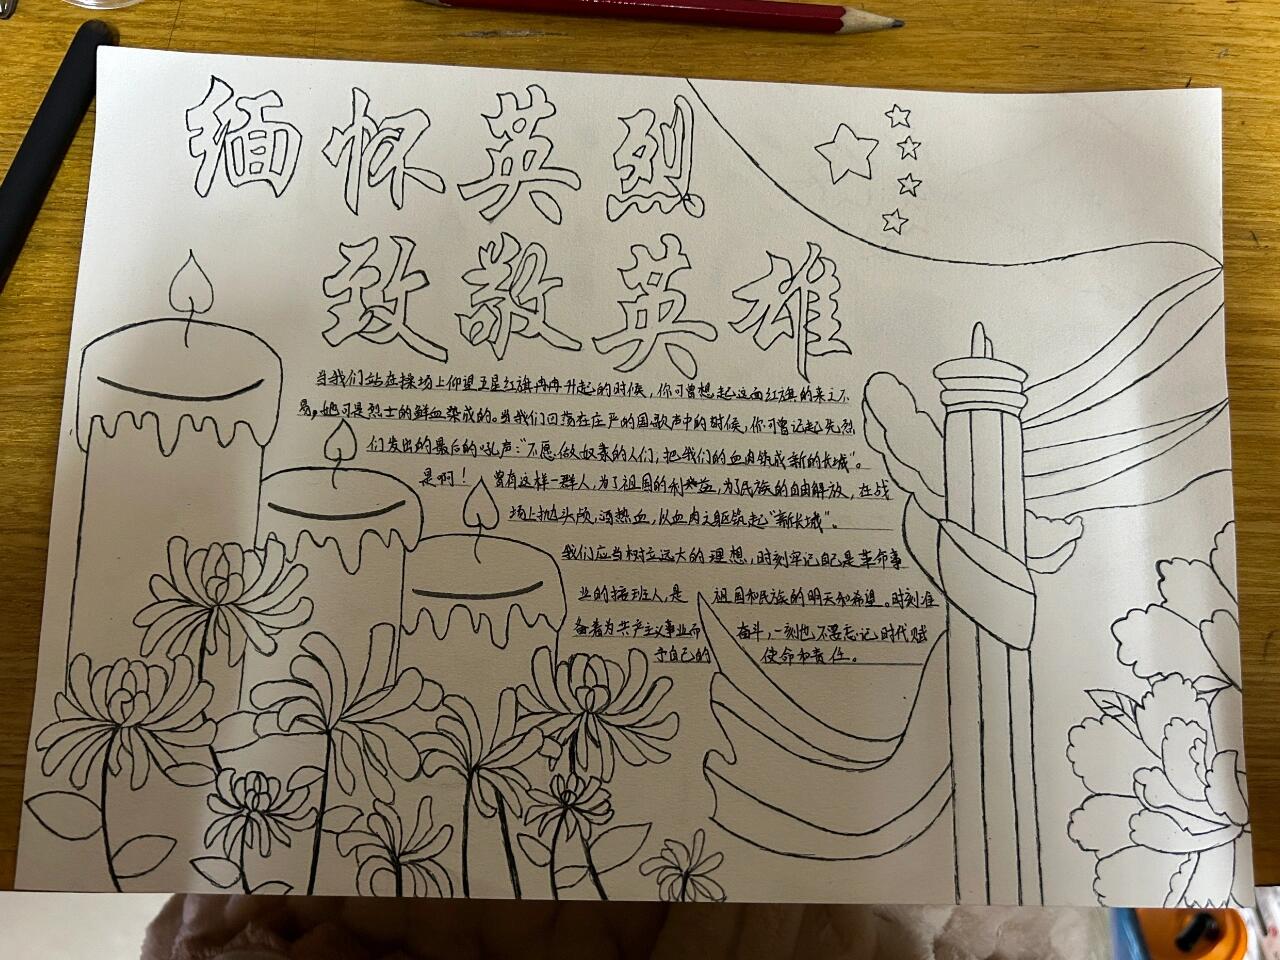 缅怀英烈
致敬英雄
当我们站在操场上仰望五星红旗冉冉升起的时候，你可曾想起这面红旗的来之不
易，她可是烈士的鲜血染成的。当我们回荡在庄严的国歌声中的时候，你可曾记起先烈
们发出的最后的吼声：“不愿做奴隶的人们，把我们的血肉筑成新的长城”。
是啊！曾有这样一群人，为了祖国的利益，为了民族的自由解放，在战
场上抛头颅，洒热血，以血肉之躯筑起“新长城”。
我们应当树立远大的理想，时刻牢记自己是革命事
业的接班人，是祖国和民族的明天和希望。时刻准
备着为共产主义事业而奋斗，一刻也不忘记时代赋
予自己的使命和责任。